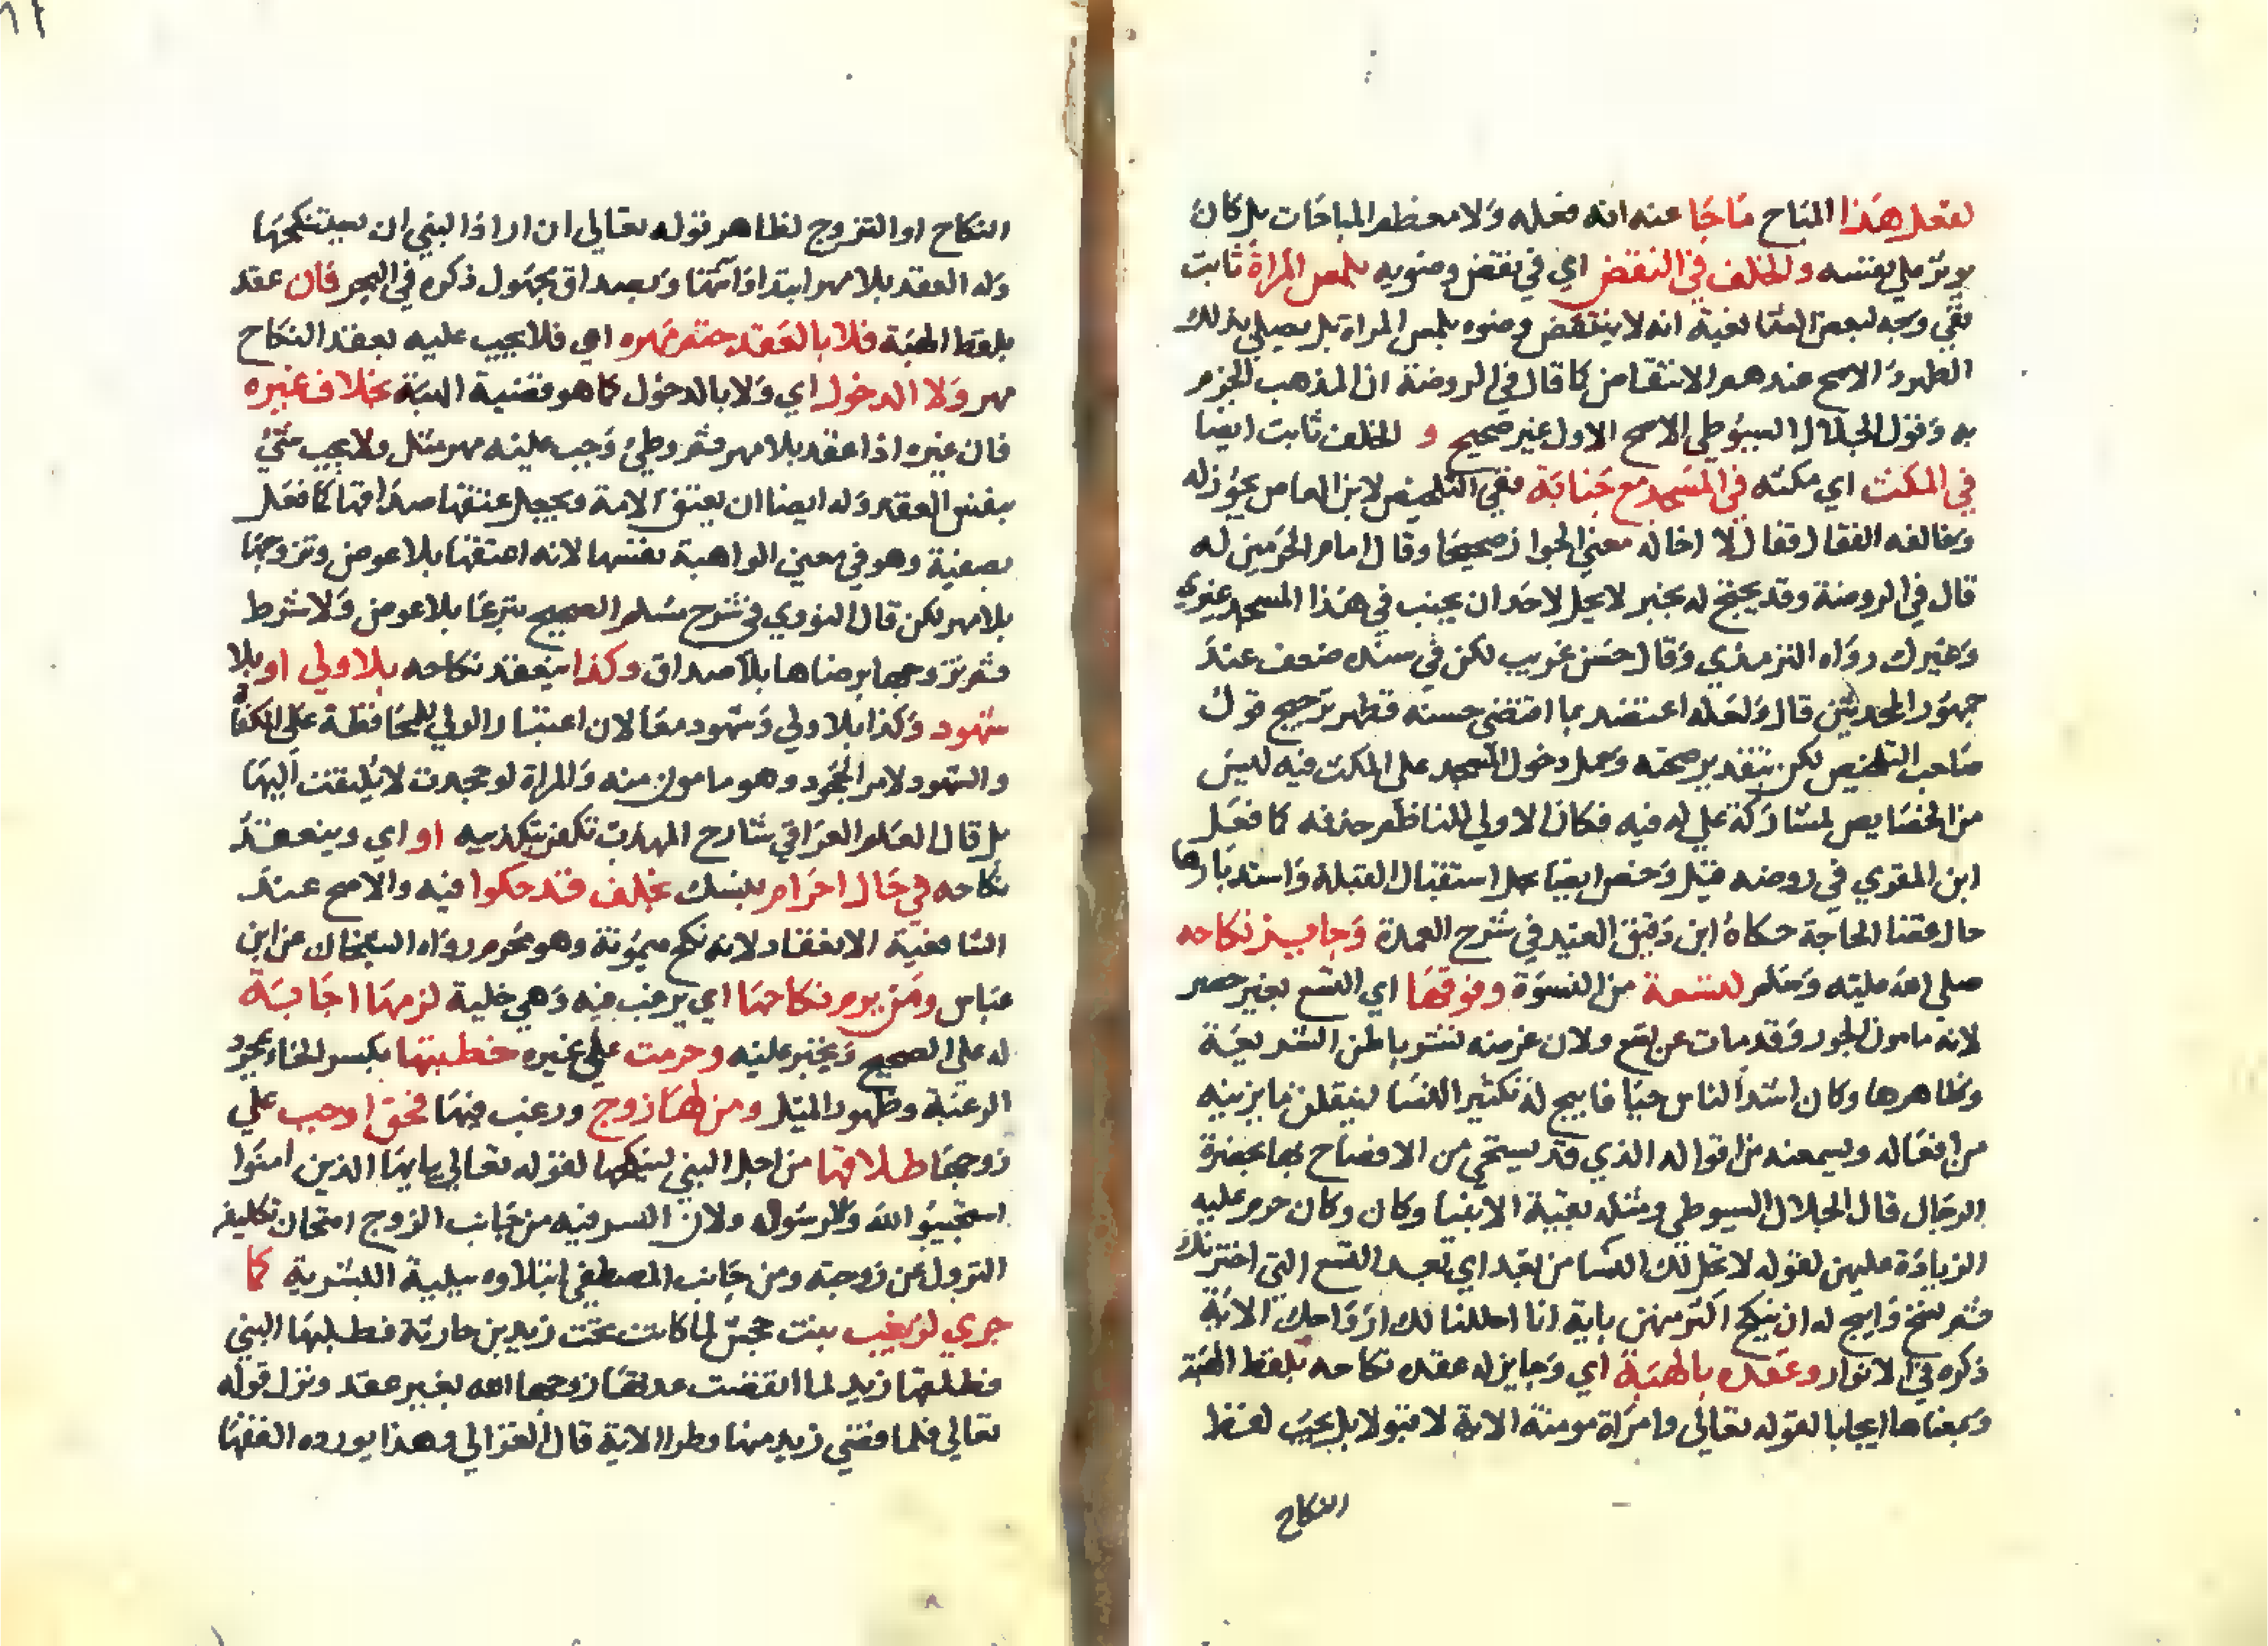 لفعل هذا المباح ما جا عنه انه فعله ولا معظم المباحات بل كان
يوثر علي نفسه والخلف في النقض اي في نقض وضويه بلمس المراة ثابت
ففي وجه لبعض الشافعية انه لا ينتقض وضوه بلمس المراة بل يصلي بذلك
الطهر والاصح عندهم الانتقاض كما قال في الروضة ان المذهب الجزم
به وقول الجلال السيوطي الاصح الاول غير صحيح و الخلف ثابت ايضا
في المكث اي مكثه في المسجد مع جنابة ففي التلخيص لابن القاص يجوز له
وخالفه القفال فقال لا اخاله معني الجواز صحيحا وقال امام الحرمين له
قال في الروضة وقد يحتج له بخبر لا يحل لاحد ان يجنب في هذا المسجد غيري
وغيرك رواه الترمذي وقال حسن غريب لكن في سنده ضعف عند
جمهور المحدثين قال ولعله اعتضد بما اقتضي حسنه فظهر ترجيح قول
صاحب التلخيص لكن بتقدير صحته وحمل دخول المسجد علي المكث فيه ليس
من الخصايص لمشاركة علي له فيه فكان الاولي للناظم حذفه كما فعل
ابن المقري في روضه قيل وخص ايضا بحل استقبال القبلة واستدبارها
حال قضا الحاجة حكاه ابن دقيق العيد في شرح العمدة وجايز نكاحه
صلي الله عليه وسلم لتسعة من النسوة وفوقها اي التسع بغير حصر
لانه مامون الجور وقد مات عن تسع ولان غرضه نشر باطن الشريعة
وظاهرها وكان اشد الناس حيا فابيح له تكثير النسا لينقلن ما يرينه
من افعاله ويسمعنه من اقواله الذي قد يستحي من الافصاح بها بحضرة
الرجال قال الجلال السيوطي ومثله بقية الانبيا وكان وكان حرم عليه
الزيادة عليهن لقوله لا تحل لك النسا من بعد اي بعد التسع التي اخترنك
ثم نسخ وابيح له ان ينكح اكثر منهن باية انا احللنا لك ازواجك الاية
ذكره في الانوار وعقده بالهبة اي وجايز له عقده نكاحه بلفظ الهبة
وبمعناها ايجابا لقوله تعالي وامراة مومنة الاية لا قبولا بل يجب لفظ
النكاح
النكاح او التزوج لظاهر قوله تعالي ان اراد النبي ان يستنكحها
وله العقد بلا مهر ابتدا وانتها وبصداق مجهول ذكره في البحر فان عقد
بلفظ الهبة فلا بالعقد حتم مهره اي فلا يجب عليه بعقد النكاح
مهر ولا الدخول اي ولا بالدخول كما هو قضية الهبة بخلاف غيره
فان غيره اذا عقد بلا مهر ثم وطئ وجب عليه مهر مثل ولا يجب شئ
بنفس العقد وله ايضا ان يعتق الامة ويجعل عتقها صداقها كما فعل
بصفية وهو في معني الواهبة نفسها لانه اعتقها بلا عوض وتزوجها
بلا مهر لكن قال النووي في شرح مسلم الصحيح تبرعا بلا عوض ولا شرط
ثم تزوجها برضاها بلا صداق وكذا ينعقد نكاحه بلا ولي او بلا
شهود وكذا بلا ولي وشهود معا لان اعتبار الولي للمحافظة علي الكفاة
والشهود لامن الجحود وهو مامون منه والمراة لو جحدت لا يلتفت اليها
بل قال العلم العراقي شارح المهذب تكفر بتكذيبه او اي وينعقد
نكاحه في حال احرام بنسك بخلف قد حكوا فيه والاصح عند
الشافعية الانعقاد لانه نكح ميمونة وهو محرم رواه الشيخان عن ابن
عباس ومن يروم نكاحها اي يرغب فيه وهي خلية لزمها اجابة
له علي الصحيح ويجبر عليه وحرمت علي غيره خطبتها بكسر الخاء بمجرد
الرغبة وظهور الميل ومن لها زوج ورغب فيها فحق اوجب علي
زوجها طلاقها من اجل النبي لينكحها لقوله تعالي يايها الذين امنوا
استجيبو الله وللرسول ولان السر فيه من جانب الزوج امتحان تكليفه
النزول عن زوجته ومن جانب المصطفي ابتلاوه ببلية البشرية كما
جري لزينب بنت جحش لما كانت تحت زيد بن حارثة فطلبها النبي
فطلقها زيد لما انقضت عدتها زوجها الله بغير عقد ونزل قوله
تعالي فلما قضي زيد منها وطرا الاية قال الغزالي وهذا يورده الفقها